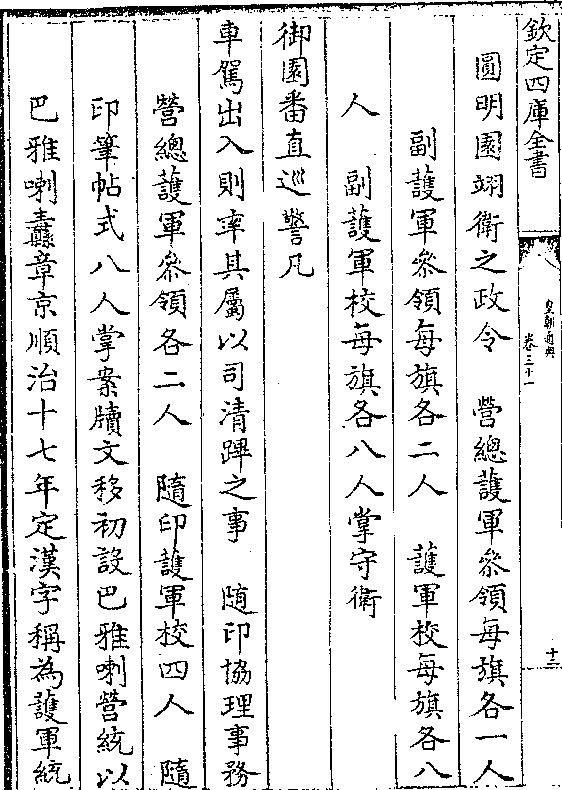 欽定四庫全書
皇朝通典
卷三十一
十三
圓明園翊衛之政令　營總護軍叅領每旗各一人
副護軍叅領每旗各二人　護軍校每旗各八
人　副護軍校每旗各八人掌守衛
御園番直巡警凡
車駕出入則率其屬以司清蹕之事　隨印協理事務
營總護軍叅領各二人　隨印護軍校四人　隨
印筆帖式八人掌案牘文移初設巴雅喇營統以
巴雅喇纛章京順治十七年定漢字稱為護軍統